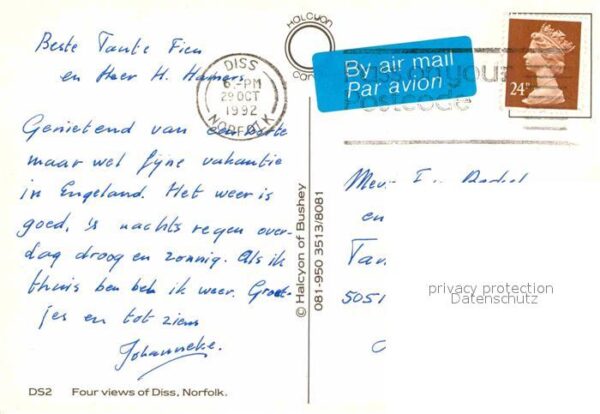 Beste Tante Fien
en Heer H. Hamers
Genietend van een korte
maar wel fijne vakantie
in Engeland. Het weer is
goed, 's nachts regen over-
dag droog en zonnig. Als ik
thuis ben bel ik weer. Groet-
jes en tot ziens
Johanneke.
DS2 Four views of Diss, Norfolk.
HALCYON
CARDS
DISS
6.-PM
29 OCT
1992
NORFOLK
By air mail
Par avion
Pass on your
Postcode
24P
© Halcyon of Bushey
081-950 3513/8081
en
5051
privacy protection
Datenschutz